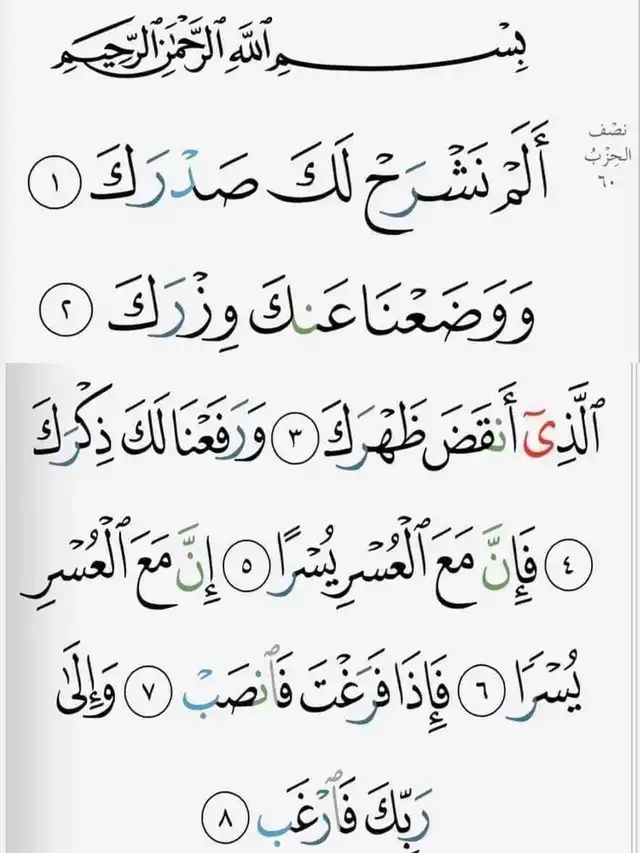 بِسْمِ ٱللَّهِ ٱلرَّحْمَٰنِ ٱلرَّحِيمِ
نصْف
الحِزْبُ
٦٠
أَلَمْ نَشْرَحْ لَكَ صَدْرَكَ ١
وَوَضَعْنَا عَنكَ وِزْرَكَ ٢
ٱلَّذِىٓ أَنقَضَ ظَهْرَكَ ٣ وَرَفَعْنَا لَكَ ذِكْرَكَ
٤ فَإِنَّ مَعَ ٱلْعُسْرِ يُسْرًا ٥ إِنَّ مَعَ ٱلْعُسْرِ
يُسْرًا ٦ فَإِذَا فَرَغْتَ فَٱنصَبْ ٧ وَإِلَىٰ
رَبِّكَ فَٱرْغَب ٨